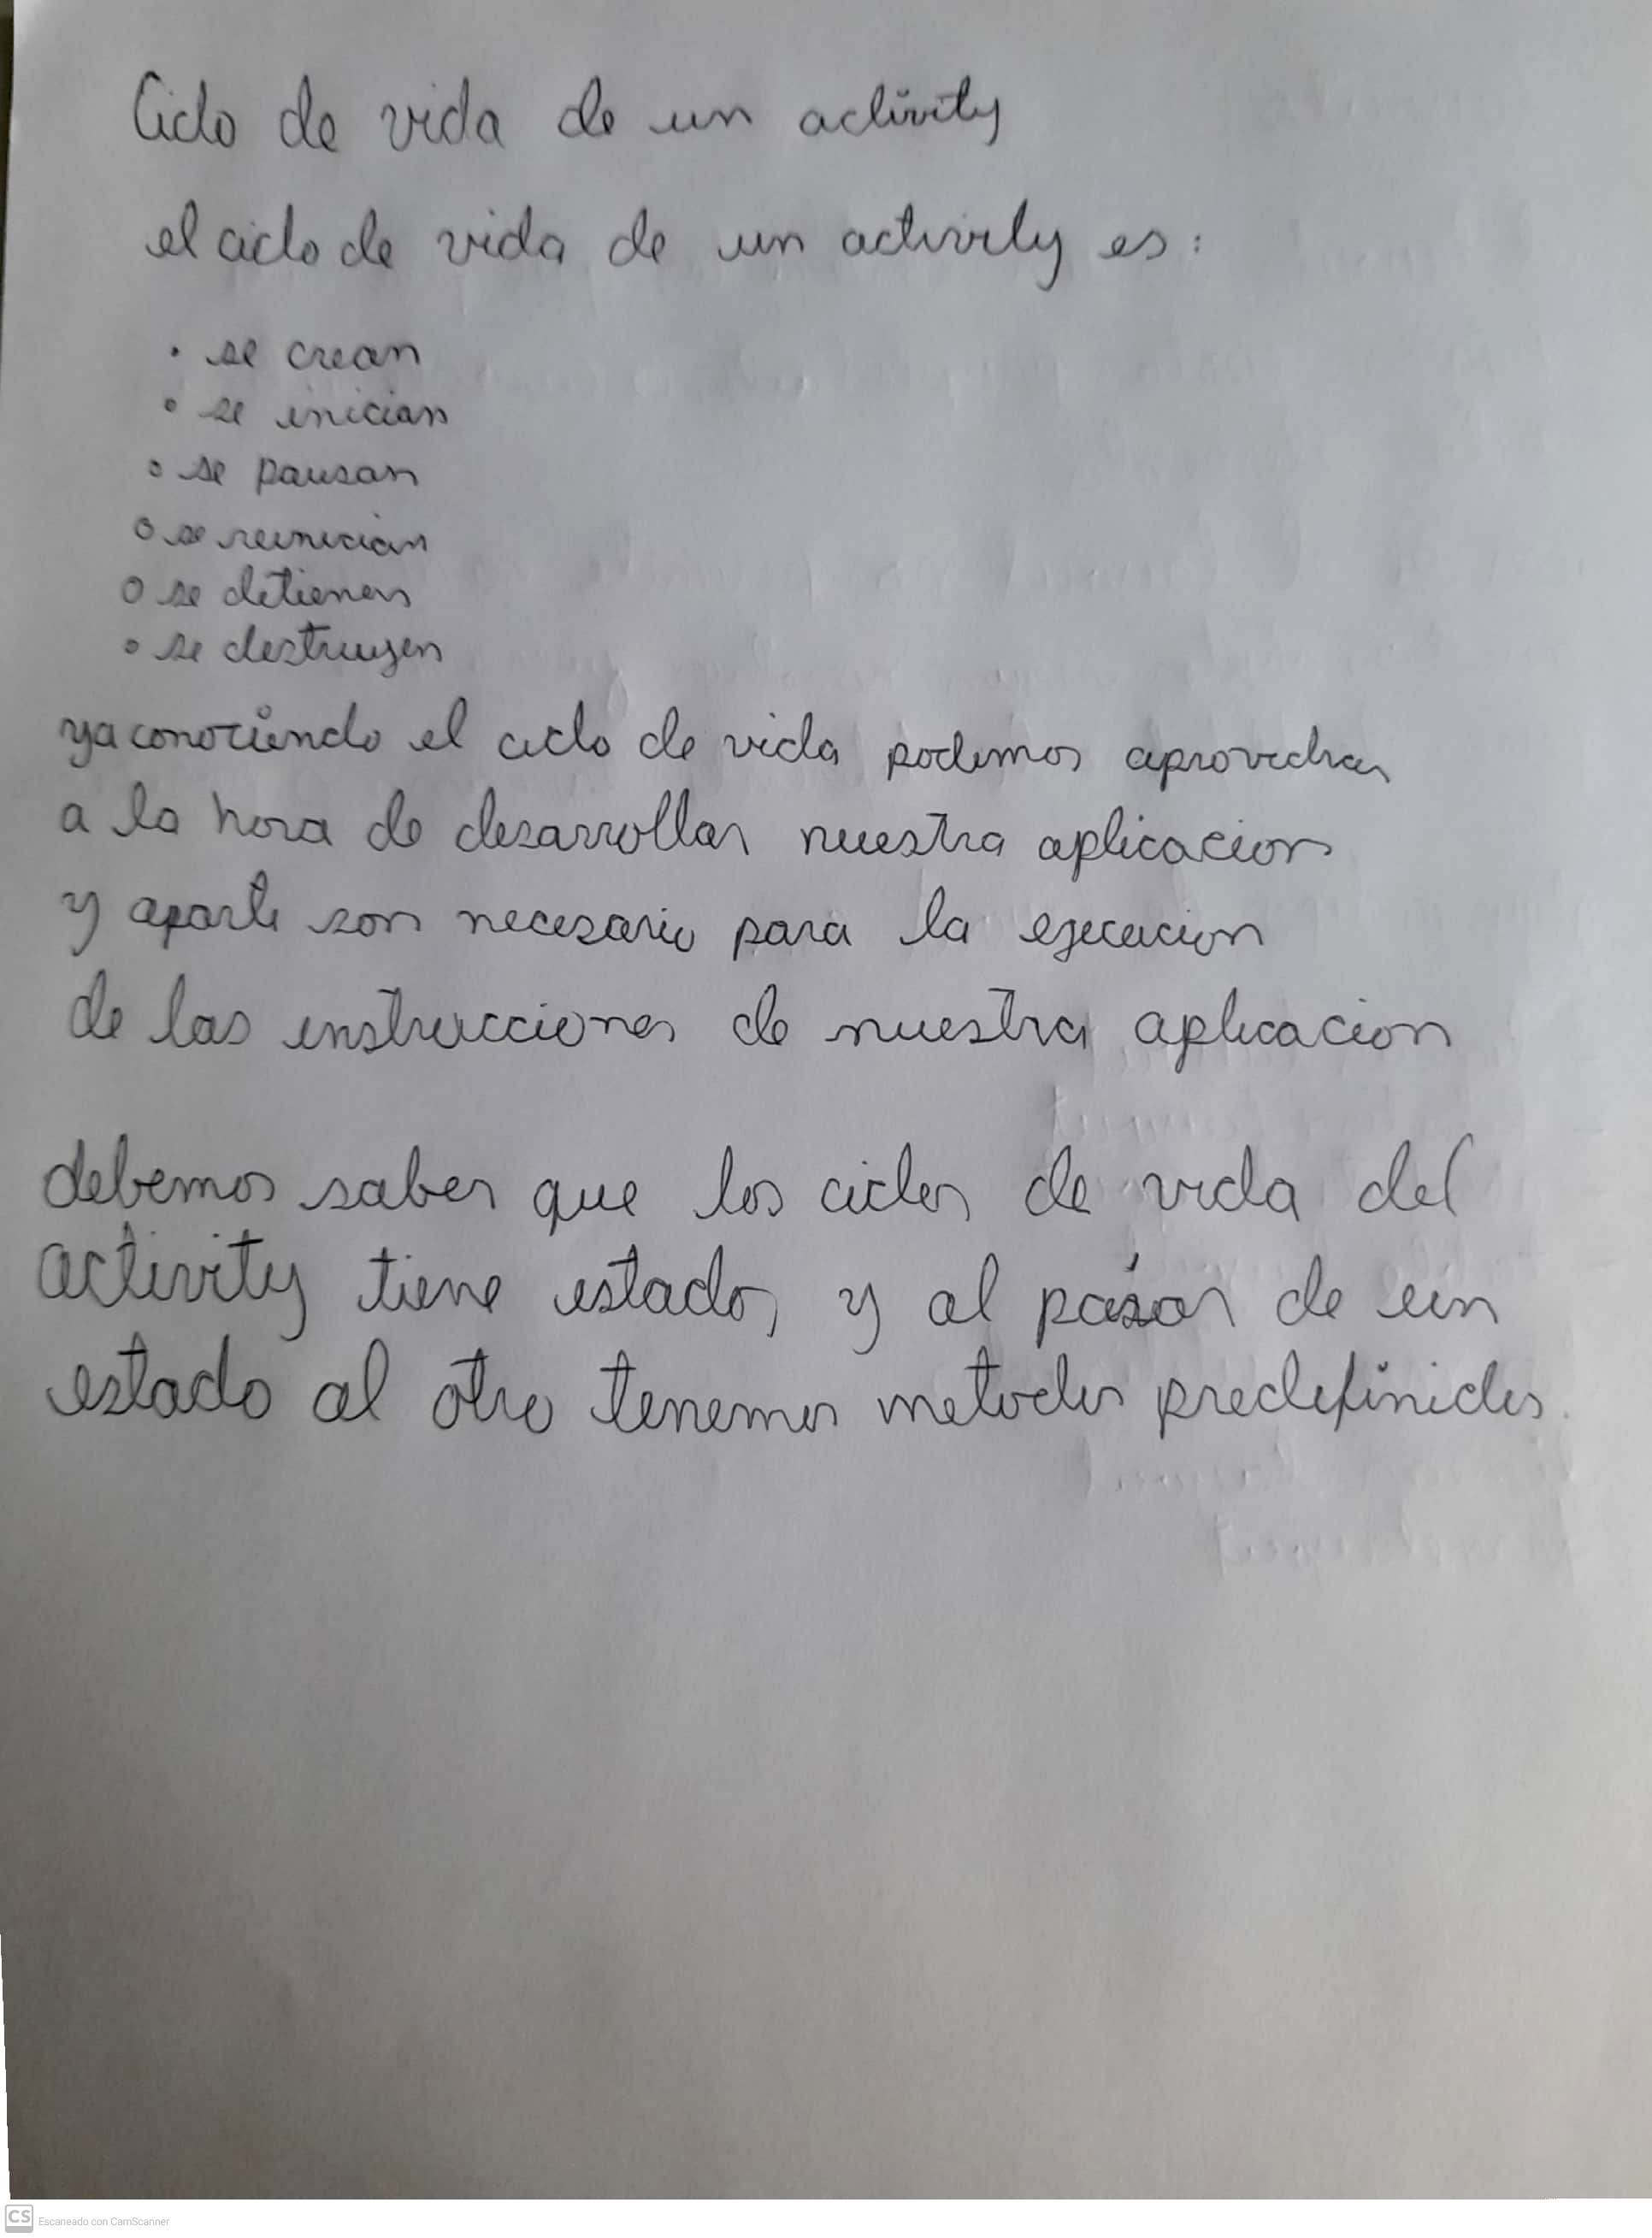 Ciclo de vida de un activity
el ciclo de vida de un activity es:
• se crean
• se inician
• se pausan
• se reinician
• se detienen
• se destruyen
ya conociendo el ciclo de vida podemos aprovechar
a la hora de desarrollar nuestra aplicacion
y aparte son necesario para la ejecucion
de las instrucciones de nuestra aplicacion
debemos saber que los ciclos de vida del
activity tiene estados y al pasar de un
estado al otro tenemos metodos predefinidos.
CS Escaneado con CamScanner